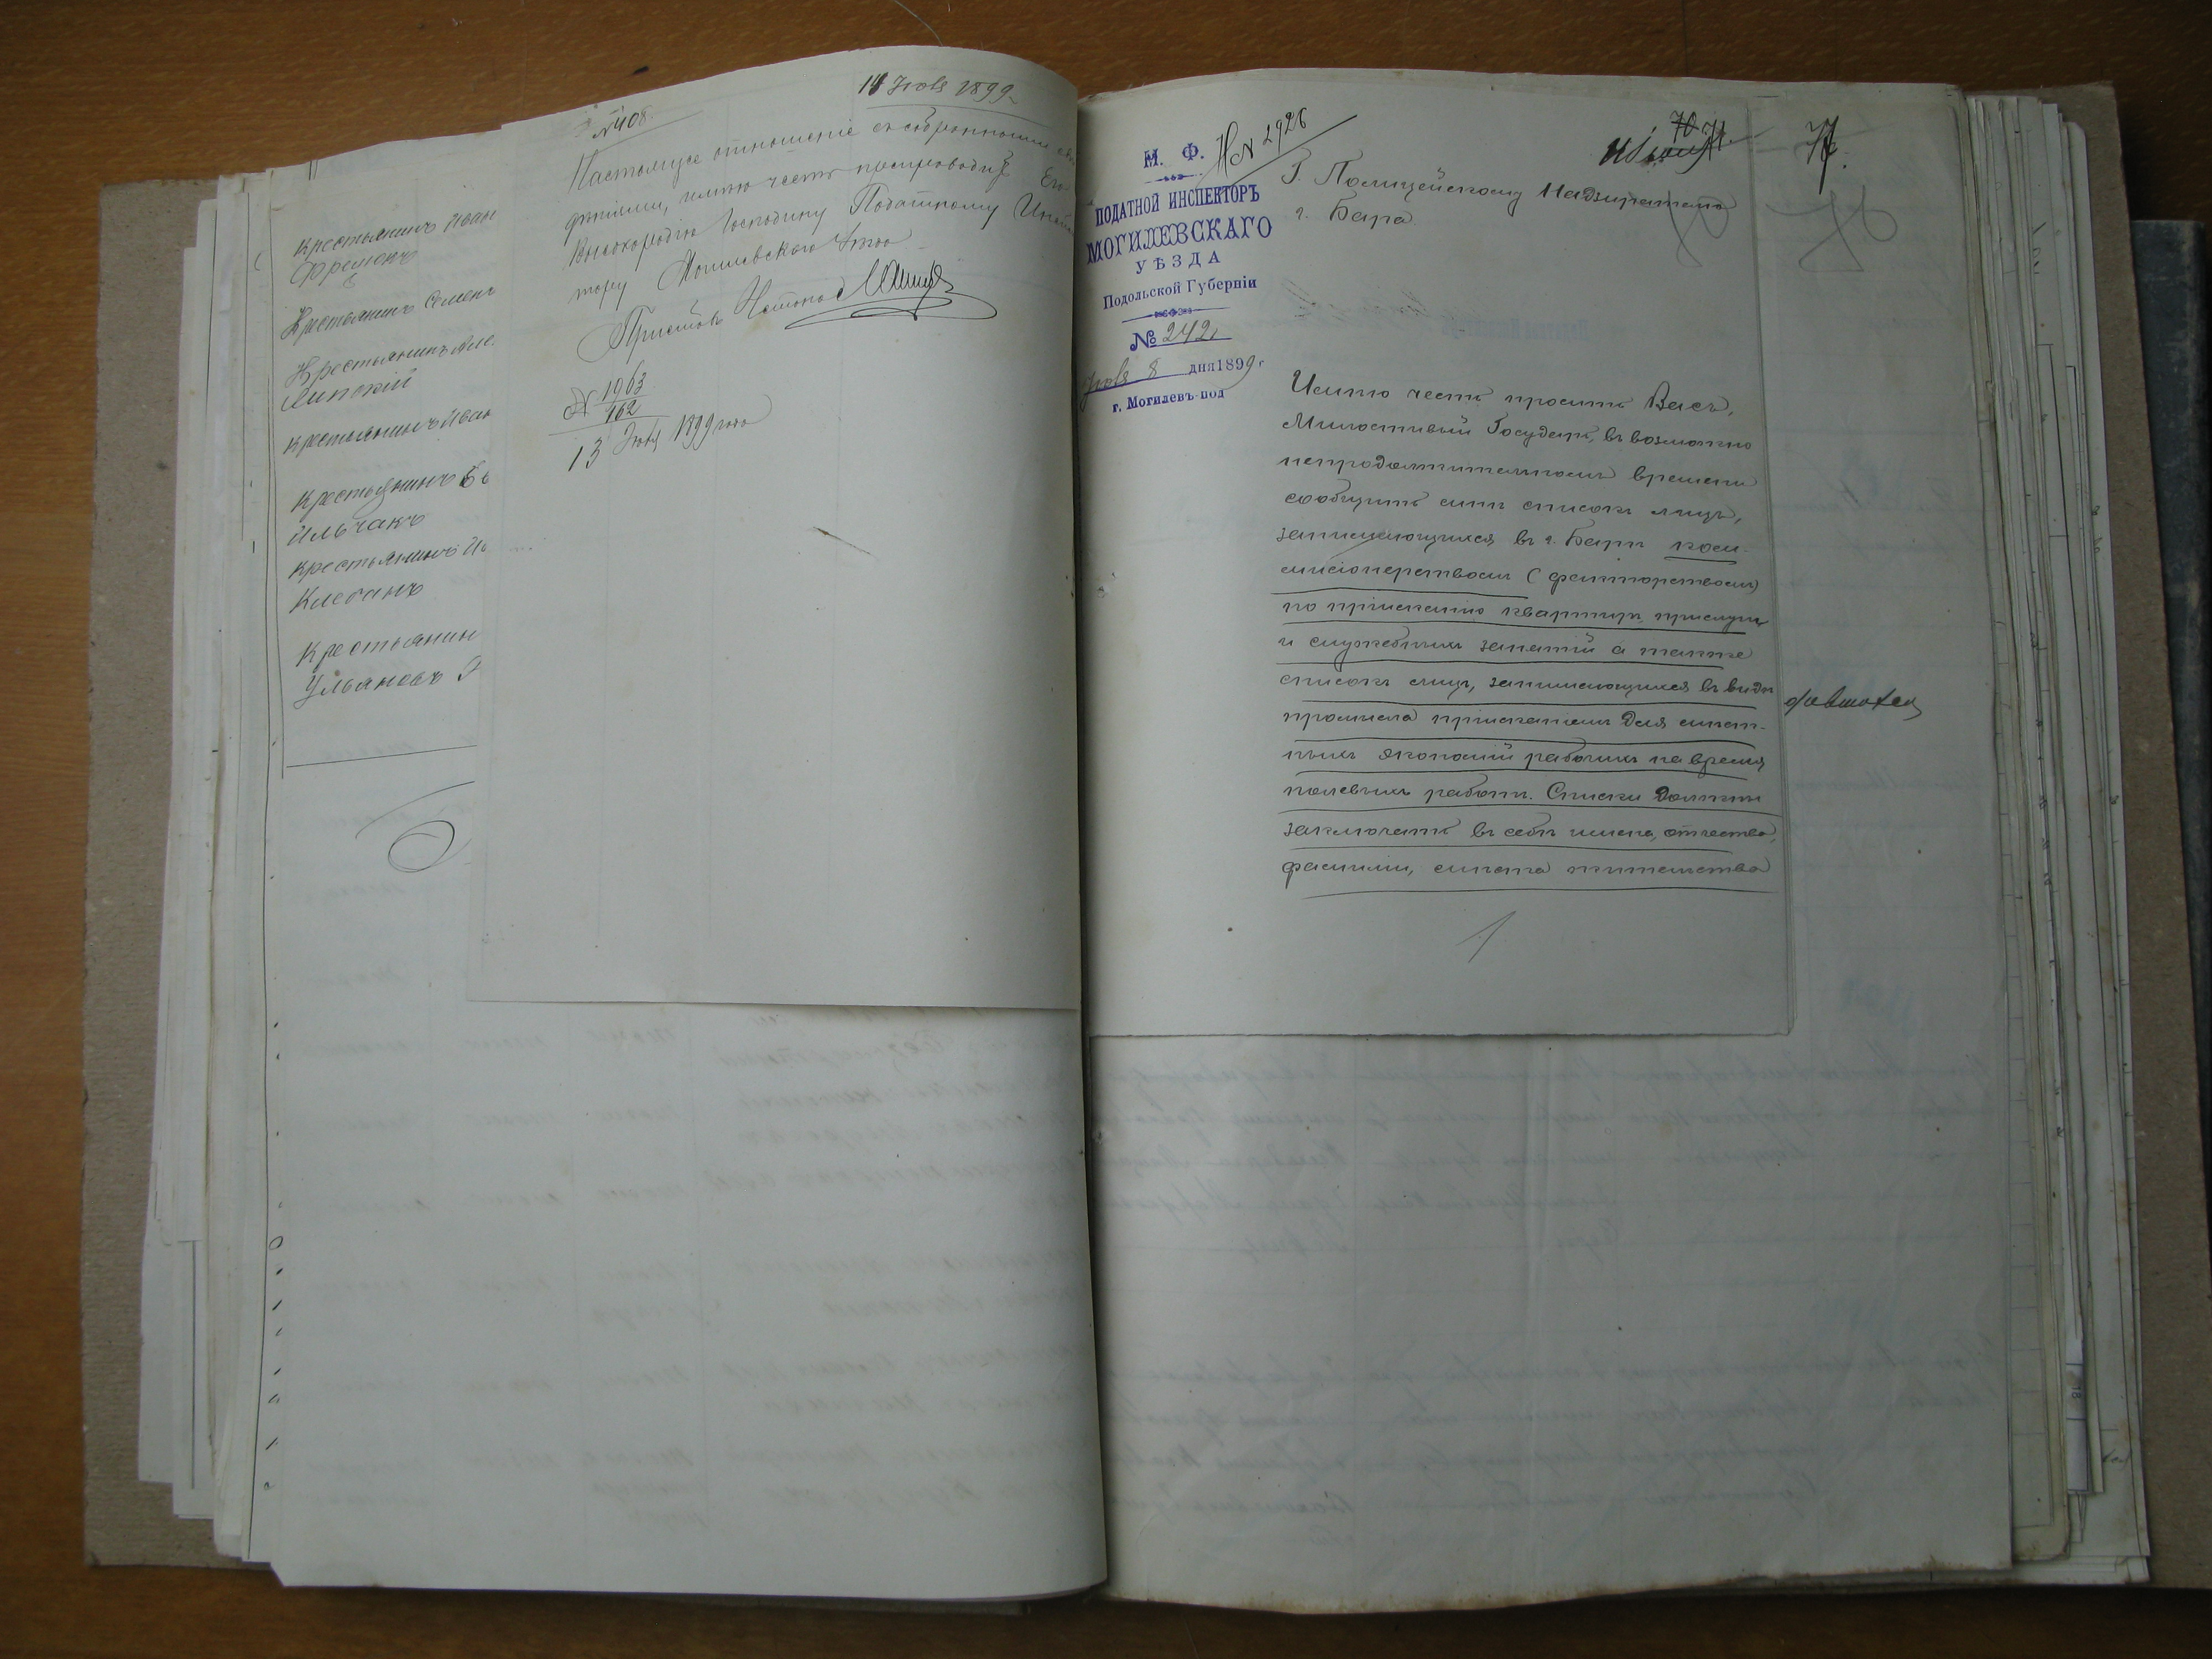 Крестьянинъ Иван
Крестьянинъ Семенъ
Крестьянинъ
Липскій
Крестьянинъ Иван
Крестьянинъ
Ильчакъ
Крестьянинъ
Клебанъ
Крестьянин
Ульановъ
№ 408
14 Іюля 1899 г.
Настоящее отношеніе съ собранными све
деніями, имѣю честь препроводить Его
Высокородію Господину Податному Инспек
тору Могилевскаго уѣзда
Приставъ
№ 1963
162
13 Іюля 1899 года
М. Ф.
№ 2926
ПОДАТНОЙ ИНСПЕКТОРЪ
МОГИЛЕВСКАГО
УѢЗДА
Подольской Губерніи
№ 242
Іюля 8 дня 1899 г
г. Могилевъ-под
70 71.
Г. Полицейскому Надзирателю
г. Бара
Имѣю честь просить Васъ,
Милостивый Государь, въ возможно
непродолжительномъ времени
сообщить мнѣ списокъ лицъ,
занимающихся въ г. Барѣ ком-
миссіонерствомъ (факторствомъ)
по пріисканію квартиръ, прислуги
и служебныхъ занятій а также
списокъ лицъ, занимающихся въ видѣ
промысла пріисканіемъ для мѣст-
ныхъ экономій рабочихъ на время
полевыхъ работъ. Списки должны
заключать въ себѣ имена, отчества,
фамиліи, мѣста жительства